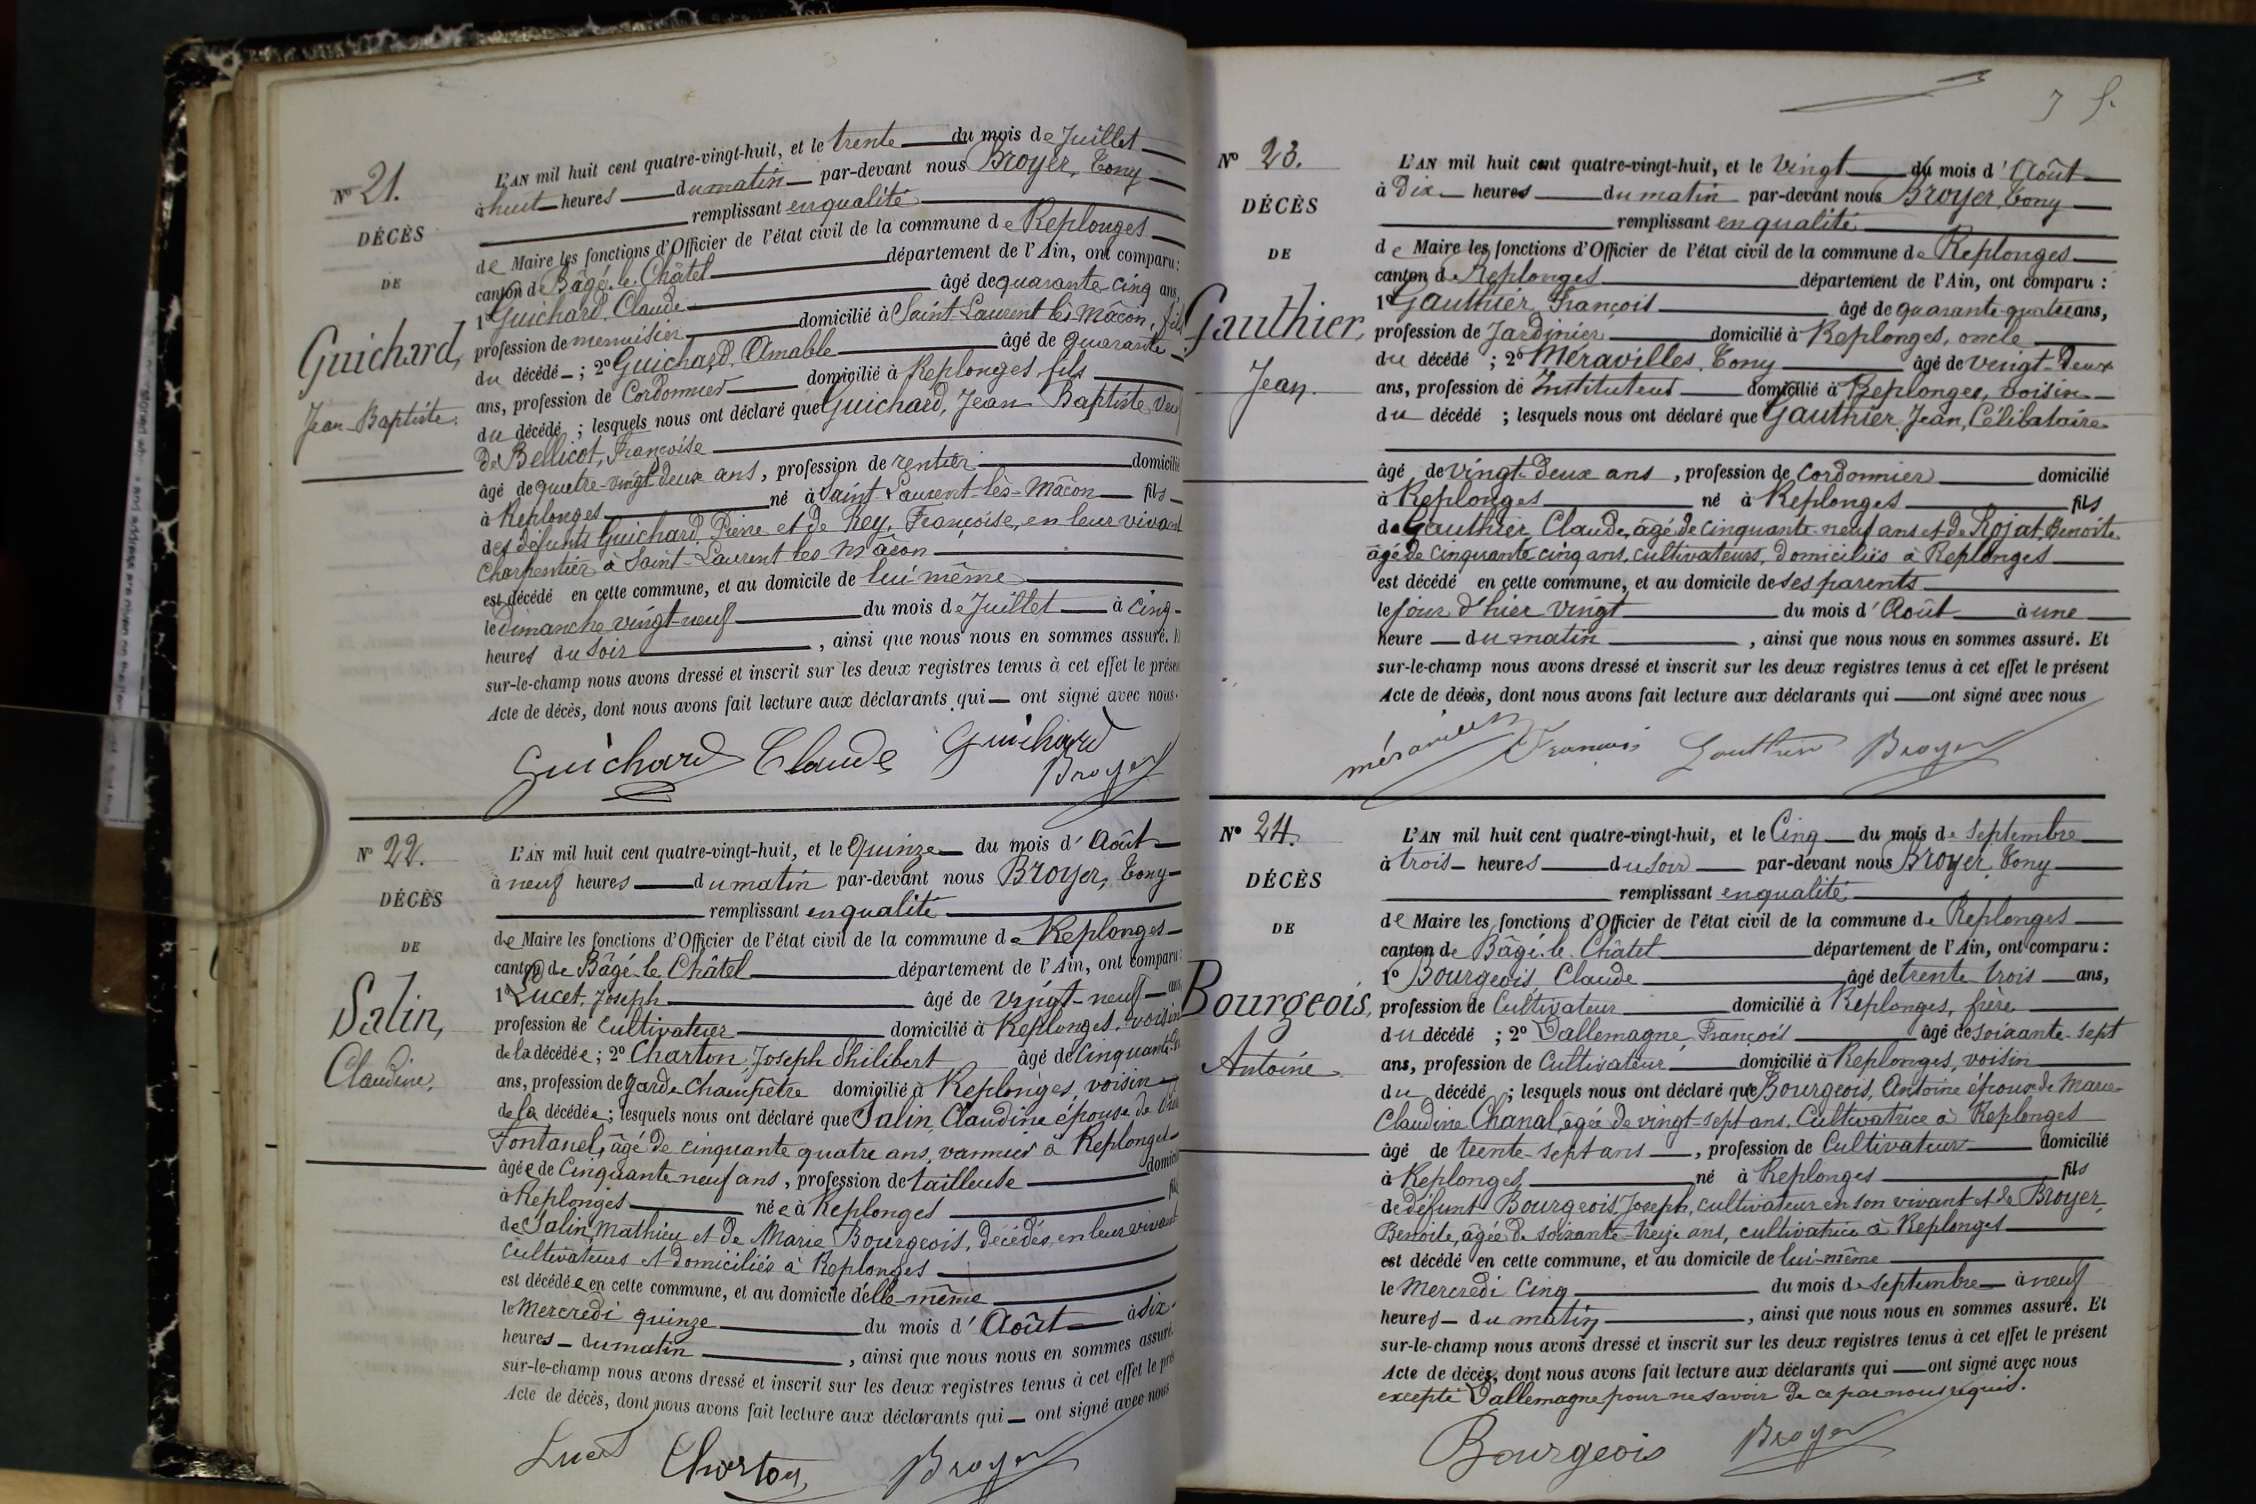 N° 21.
DÉCÈS
DE
Guichard,
Jean Baptiste.
L'AN mil huit cent quatre-vingt-huit, et le trente du mois de Juillet
à huit heures du matin par-devant nous Broyer, Tony
remplissant en qualité
de Maire les fonctions d'Officier de l'état civil de la commune de Replonges
canton de Bâgé-le-Châtel département de l'Ain, ont comparu :
1° Guichard, Claude âgé de quarante cinq ans,
profession de menuisier domicilié à Saint-Laurent-lès-Mâcon, fils
du décédé ; 2° Guichard, Amable âgé de quarante
ans, profession de Cordonnier domicilié à Replonges fils
du décédé ; lesquels nous ont déclaré que Guichard, Jean Baptiste
de Bellicot, Françoise
âgé de quatre-vingt deux ans, profession de rentier domicilié
à Replonges né à Saint-Laurent-lès-Mâcon fils
des défunts Guichard, Pierre et de Rey, Françoise, en leur vivant
charpentier à Saint-Laurent les Mâcon
est décédé en cette commune, et au domicile de lui même
le Dimanche vingt-neuf du mois de Juillet à cinq
heures du soir, ainsi que nous nous en sommes assuré.
sur-le-champ nous avons dressé et inscrit sur les deux registres tenus à cet effet le présent
Acte de décès, dont nous avons fait lecture aux déclarants qui ont signé avec nous.
Guichard Claude Guichard
Broyer
N° 22.
DÉCÈS
DE
Salin,
Claudine,
L'AN mil huit cent quatre-vingt-huit, et le Quinze du mois d'Août
à neuf heures du matin par-devant nous Broyer, Tony
remplissant en qualité
de Maire les fonctions d'Officier de l'état civil de la commune de Replonges
canton de Bâgé-le-Châtel département de l'Ain, ont comparu :
1° Lucet, Joseph âgé de vingt-neuf ans
profession de cultivateur domicilié à Replonges, voisin
de la décédée ; 2° Charton, Joseph Philibert âgé de Cinquante
ans, profession de garde champêtre domicilié à Replonges, voisin
de la décédée ; lesquels nous ont déclaré que Salin, Claudine épouse de
Fontanel, âgé de cinquante quatre ans, vannier à Replonges
âgée de Cinquante neuf ans, profession de tailleuse domicilié
à Replonges née à Replonges
de Salin, Mathieu et de Marie Bourgeois, décédés, en leur vivant
cultivateurs et domiciliés à Replonges
est décédée en cette commune, et au domicile d'elle même
le Mercredi quinze du mois d'Août à six
heures du matin, ainsi que nous nous en sommes assuré.
sur-le-champ nous avons dressé et inscrit sur les deux registres tenus à cet effet le
Acte de décès, dont nous avons fait lecture aux déclarants qui ont signé avec nous
Lucet Charton Broyer
N° 23.
DÉCÈS
DE
Gauthier,
Jean.
L'AN mil huit cent quatre-vingt-huit, et le vingt du mois d'Août
à Dix heures du matin par-devant nous Broyer, Tony
remplissant en qualité
de Maire les fonctions d'Officier de l'état civil de la commune de Replonges
canton de Replonges département de l'Ain, ont comparu :
1° Gauthier, François âgé de quarante-quatre ans,
profession de Jardinier domicilié à Replonges, oncle
du décédé ; 2° Meravilles, Tony âgé de vingt-deux
ans, profession de Instituteur domicilié à Replonges, voisin
du décédé ; lesquels nous ont déclaré que Gauthier, Jean, Célibataire
âgé de vingt-deux ans, profession de cordonnier domicilié
à Replonges né à Replonges fils
de Gauthier, Claude, âgé de cinquante-neuf ans et de Rojat, Benoite
âgé de cinquante cinq ans, cultivateurs, domiciliés à Replonges
est décédé en cette commune, et au domicile de ses parents
le jour d'hier vingt du mois d'Août à une
heure du matin, ainsi que nous nous en sommes assuré. Et
sur-le-champ nous avons dressé et inscrit sur les deux registres tenus à cet effet le présent
Acte de décès, dont nous avons fait lecture aux déclarants qui ont signé avec nous
François Gauthier Broyer
N° 24.
DÉCÈS
DE
Bourgeois,
Antoine
L'AN mil huit cent quatre-vingt-huit, et le Cinq du mois de septembre
à trois heures du soir par-devant nous Broyer, Tony
remplissant en qualité
de Maire les fonctions d'Officier de l'état civil de la commune de Replonges
canton de Bâgé-le-Châtel département de l'Ain, ont comparu :
1° Bourgeois, Claude âgé de trente trois ans,
profession de Cultivateur domicilié à Replonges, frère
du décédé ; 2° Dallemagne, François âgé de soixante-sept
ans, profession de Cultivateur domicilié à Replonges, voisin
du décédé ; lesquels nous ont déclaré que Bourgeois, Antoine époux de Marie
Claudine Chanal, âgée de vingt-sept ans, Cultivatrice à Replonges
âgé de trente-sept ans, profession de Cultivateur domicilié
à Replonges né à Replonges fils
de défunt Bourgeois, Joseph, cultivateur en son vivant et de Broyer,
Benoite, âgée de soixante-treize ans, cultivatrice à Replonges
est décédé en cette commune, et au domicile de lui-même
le Mercredi Cinq du mois de septembre à neuf
heures du matin, ainsi que nous nous en sommes assuré. Et
sur-le-champ nous avons dressé et inscrit sur les deux registres tenus à cet effet le présent
Acte de décès, dont nous avons fait lecture aux déclarants qui ont signé avec nous
excepté Dallemagne pour ne savoir de ce par nous requis.
Bourgeois Broyer